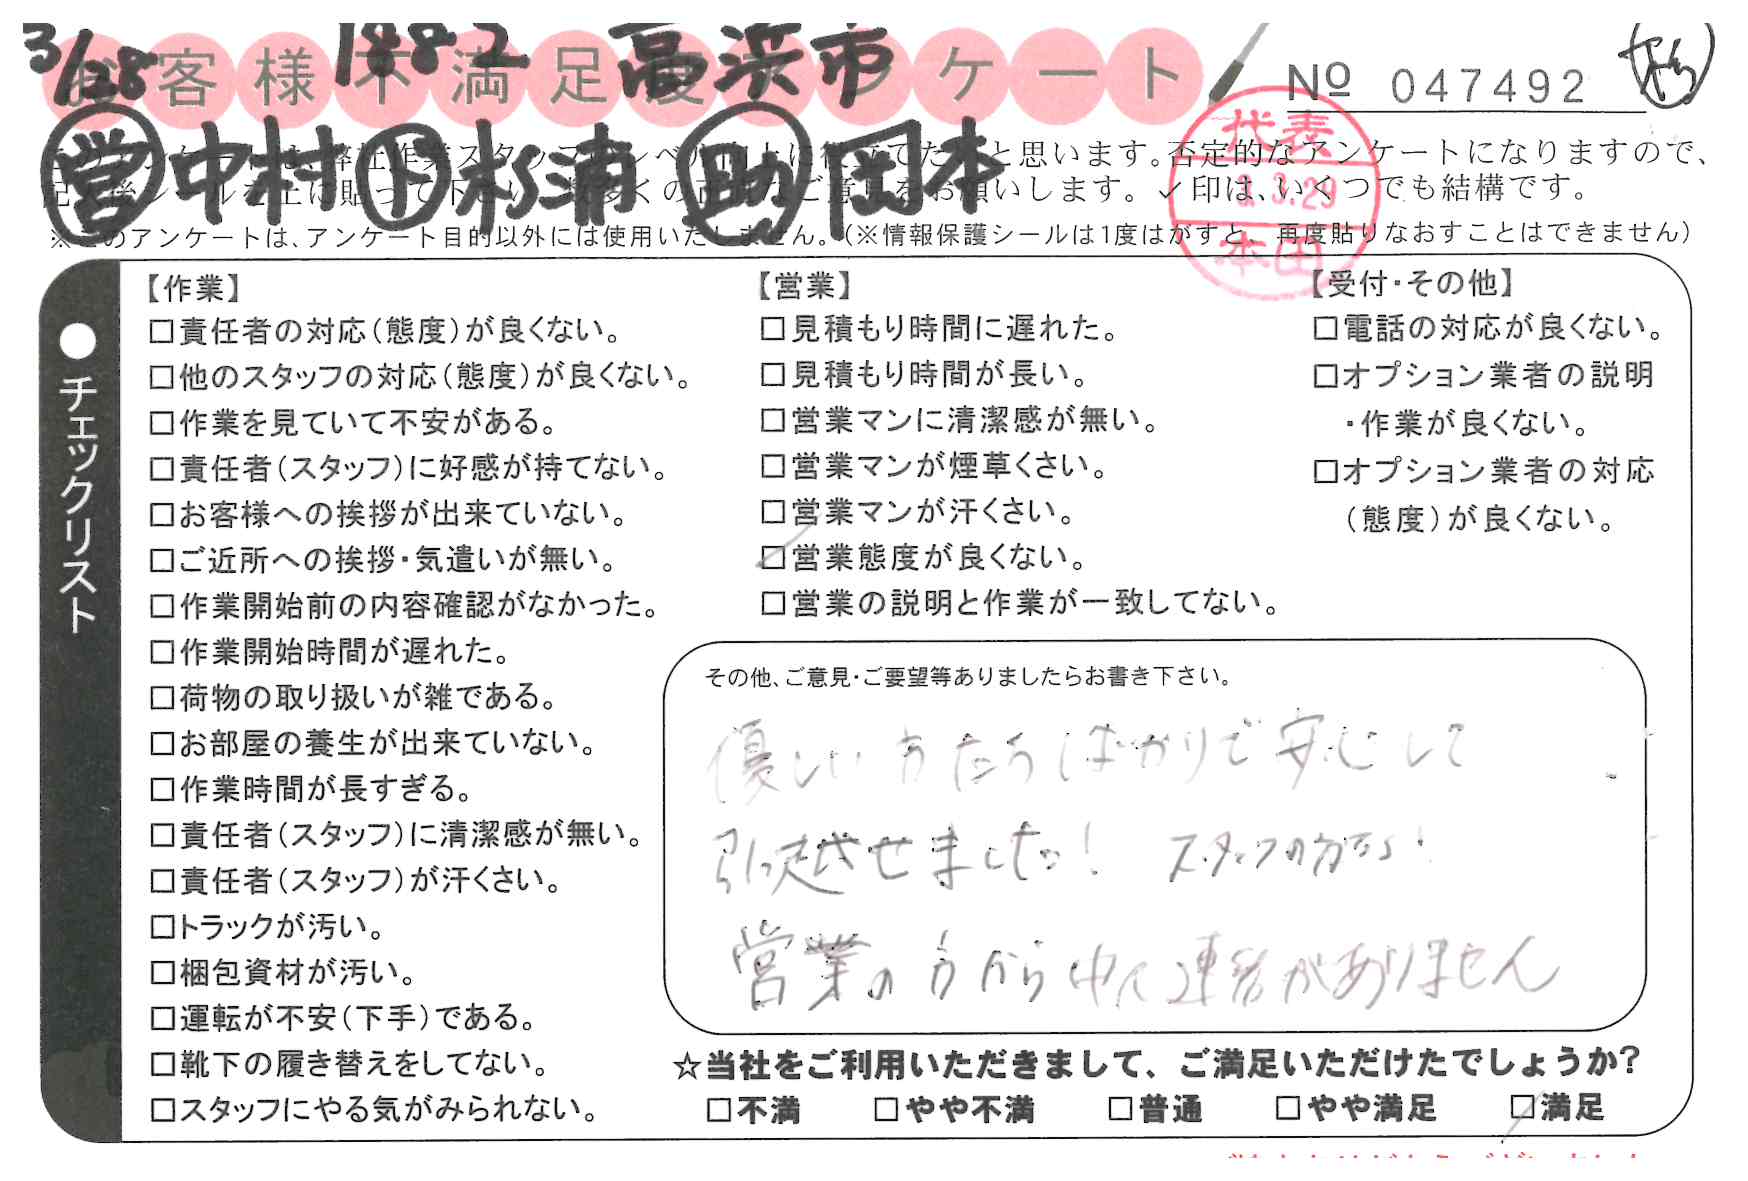 3/28 1882 高浜市
お客様不満足度アンケート
№ 047492
営 中村 下 杉浦 助 岡本
代表
3.29
本田
このアンケートは、弊社作業スタッフのレベル向上に役立てたいと思います。否定的なアンケートになりますので、
記入後シールを上に貼って下さい。数多くの正直なご意見をお願いします。✓印は、いくつでも結構です。
※このアンケートは、アンケート目的以外には使用いたしません。(※情報保護シールは1度はがすと、再度貼りなおすことはできません)
●チェックリスト
【作業】
□責任者の対応(態度)が良くない。
□他のスタッフの対応(態度)が良くない。
□作業を見ていて不安がある。
□責任者(スタッフ)に好感が持てない。
□お客様への挨拶が出来ていない。
□ご近所への挨拶・気遣いが無い。
□作業開始前の内容確認がなかった。
□作業開始時間が遅れた。
□荷物の取り扱いが雑である。
□お部屋の養生が出来ていない。
□作業時間が長すぎる。
□責任者(スタッフ)に清潔感が無い。
□責任者(スタッフ)が汗くさい。
□トラックが汚い。
□梱包資材が汚い。
□運転が不安(下手)である。
□靴下の履き替えをしてない。
□スタッフにやる気がみられない。
【営業】
□見積もり時間に遅れた。
□見積もり時間が長い。
□営業マンに清潔感が無い。
□営業マンが煙草くさい。
□営業マンが汗くさい。
□営業態度が良くない。
□営業の説明と作業が一致してない。
【受付・その他】
□電話の対応が良くない。
□オプション業者の説明
・作業が良くない。
□オプション業者の対応
(態度)が良くない。
その他、ご意見・ご要望等ありましたらお書き下さい。
優しい方たちばかりで安心して
引っ越せました! スタッフの方たち!
営業の方から中々連絡がありません
☆当社をご利用いただきまして、ご満足いただけたでしょうか?
□不満 □やや不満 □普通 □やや満足 □満足